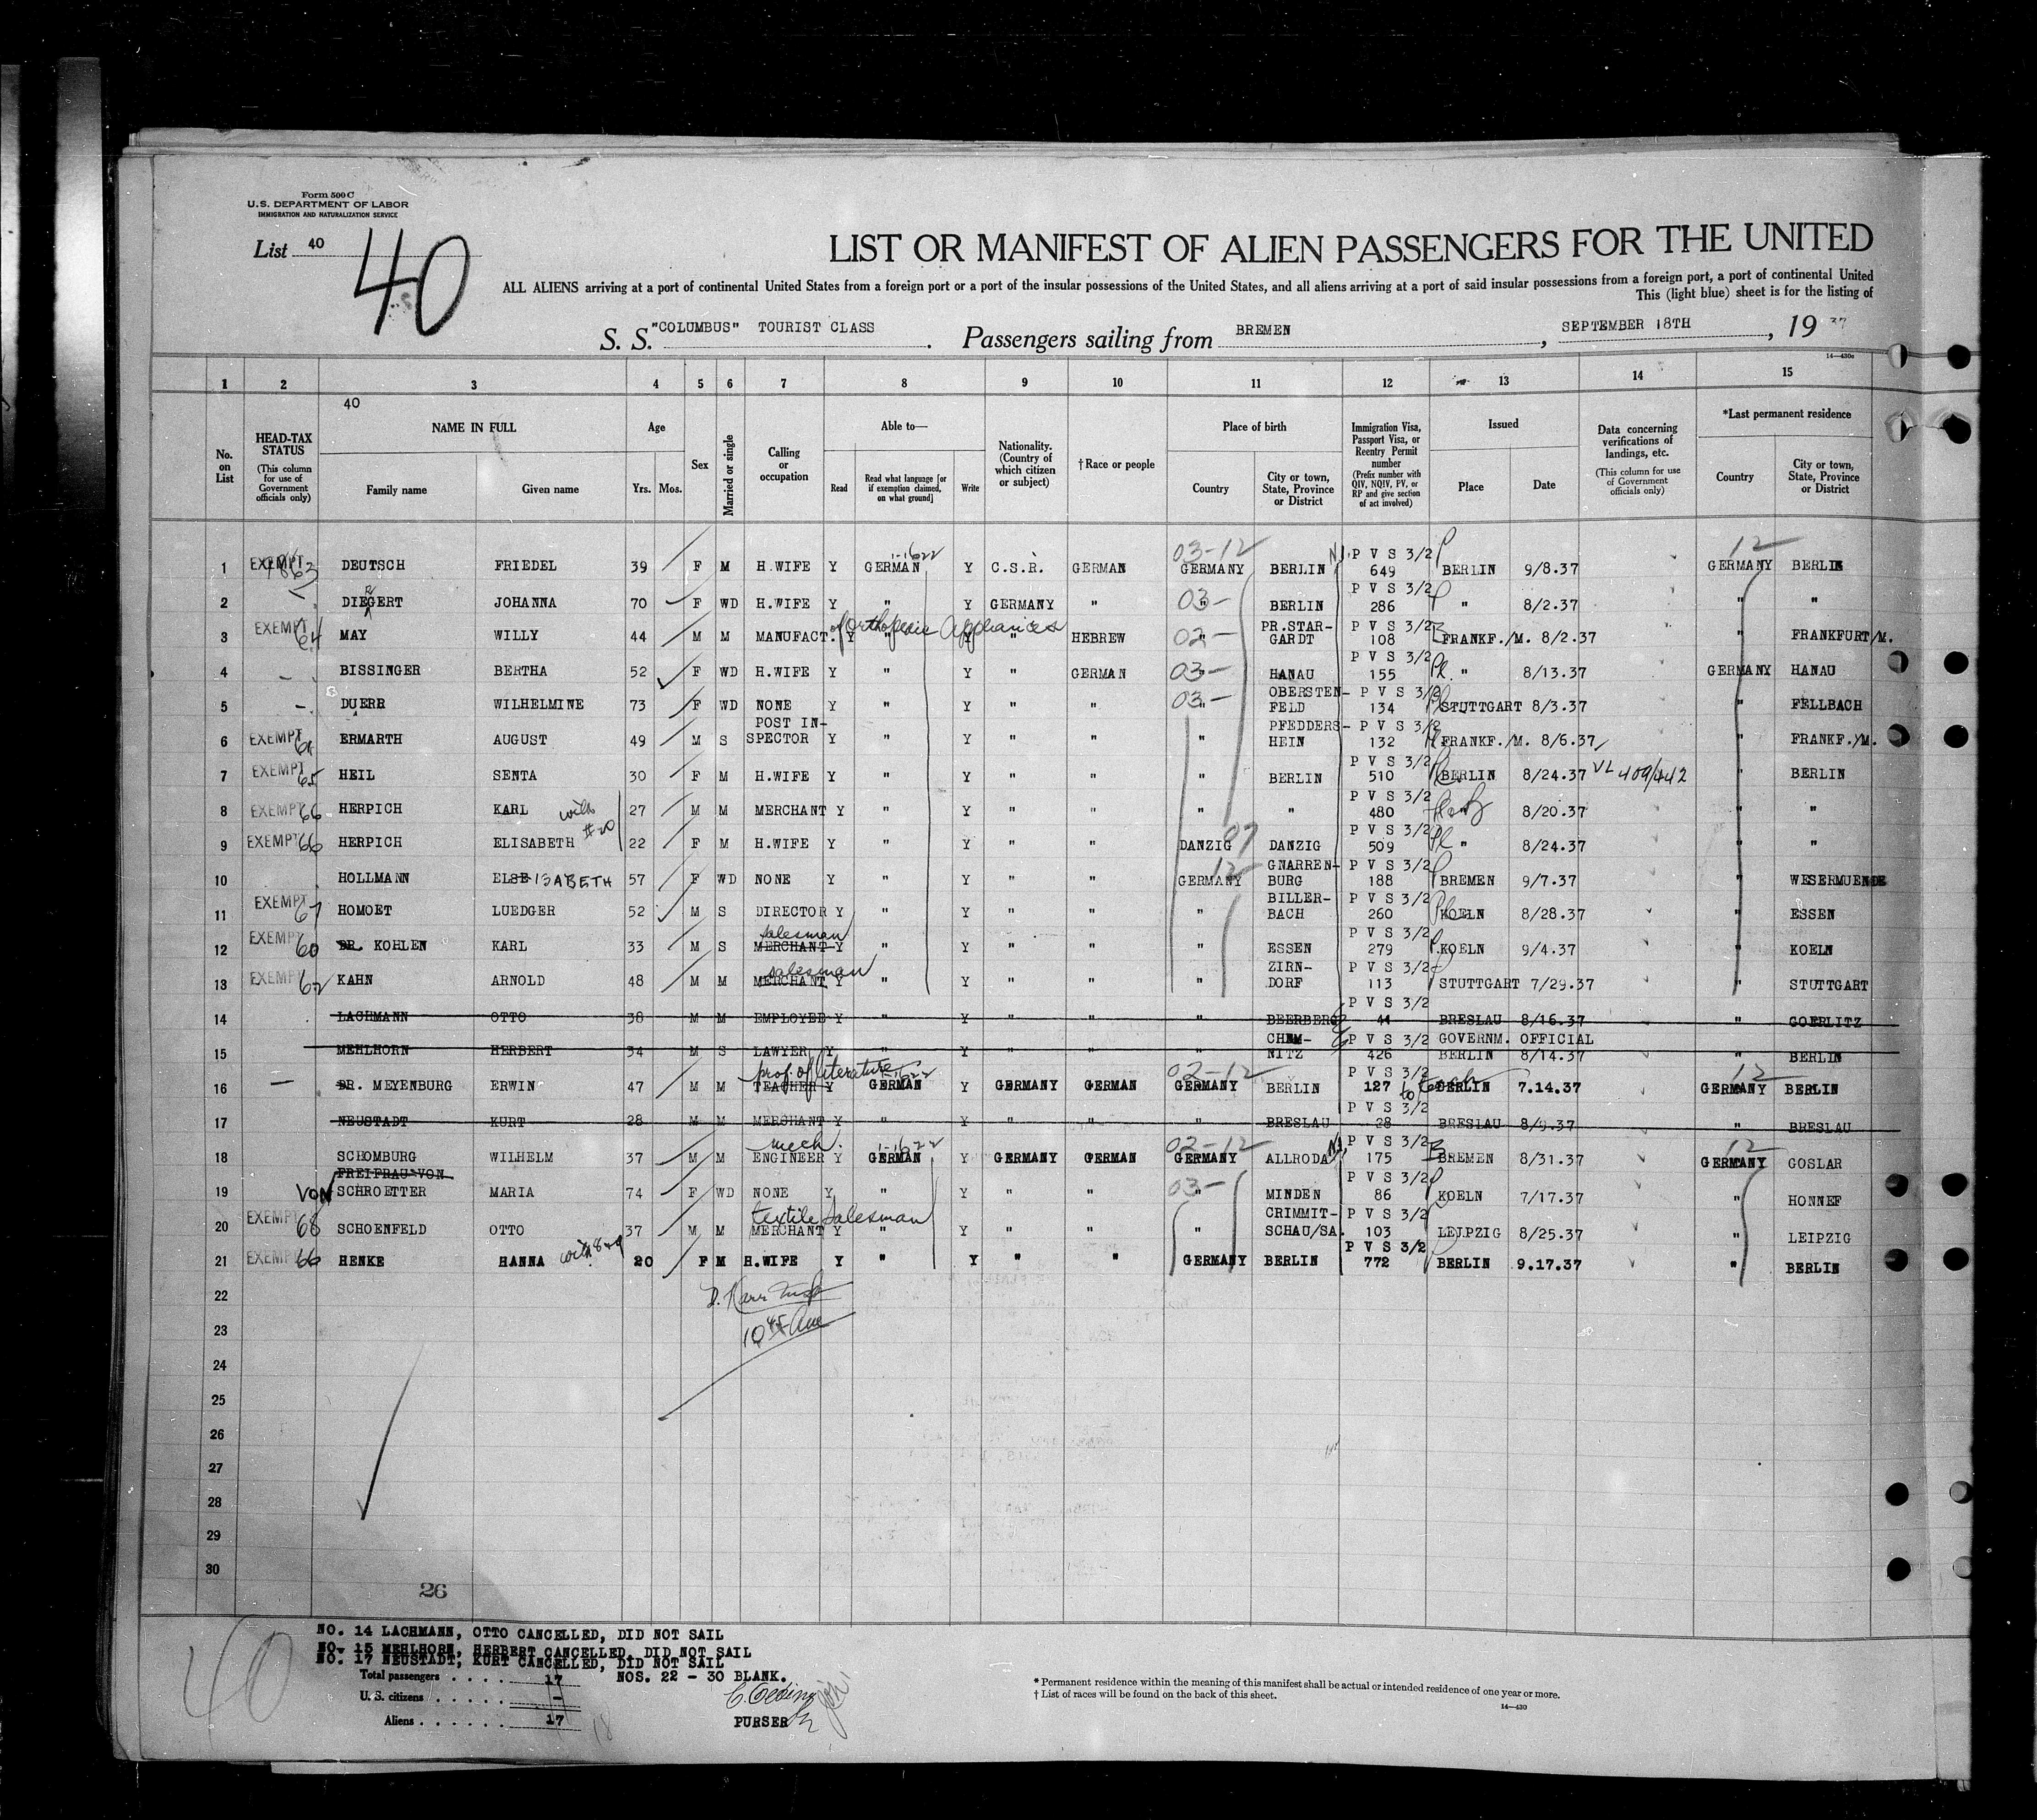 Form 500 C
U.S. DEPARTMENT OF LABOR
IMMIGRATION AND NATURALIZATION SERVICE
List 40
40
LIST OR MANIFEST OF ALIEN PASSENGERS FOR THE UNITED
ALL ALIENS arriving at a port of continental United States from a foreign port or a port of the insular possessions of the United States, and all aliens arriving at a port of said insular possessions from a foreign port, a port of continental United
This (light blue) sheet is for the listing of
S. S. "COLUMBUS" TOURIST CLASS . Passengers sailing from BREMEN , SEPTEMBER 18TH , 19 37
14—430c
1 2 3 4 5 6 7 8 9 10 11 12 13 14 15
40
No. on List
HEAD-TAX STATUS (This column for use of Government officials only)
NAME IN FULL
Family name Given name
Age
Yrs. Mos.
Sex
Married or single
Calling or occupation
Able to—
Read Read what language [or if exemption claimed, on what ground] Write
Nationality. (Country of which citizen or subject)
†Race or people
Place of birth
Country City or town, State, Province or District
Immigration Visa, Passport Visa, or Reentry Permit number (Prefix number with QIV, NQIV, PV, or RP and give section of act involved)
Issued
Place Date
Data concerning verifications of landings, etc. (This column for use of Government officials only)
*Last permanent residence
Country City or town, State, Province or District
03-12 12
1 EXEMPT 63 DEUTSCH FRIEDEL 39 F M H.WIFE Y GERMAN Y C.S.R. GERMAN GERMANY BERLIN P V S 3/2 649 BERLIN 9/8.37 GERMANY BERLIN
2 DIEGERT JOHANNA 70 F WD H.WIFE Y " Y GERMANY " 03- " BERLIN P V S 3/2 286 " 8/2.37 " "
3 EXEMPT 64 MAY WILLY 44 M M MANUFACT. of Orthopedic Appliances Y " Y " HEBREW 02- " PR.STAR-GARDT P V S 3/2 108 FRANKF./M. 8/2.37 " FRANKFURT/M.
4 - BISSINGER BERTHA 52 F WD H.WIFE Y " Y " GERMAN 03- " HANAU P V S 3/2 155 " 8/13.37 GERMANY HANAU
5 - DUERR WILHELMINE 73 F WD NONE Y " Y " " 03- " OBERSTEN-FELD P V S 3/2 134 STUTTGART 8/3.37 " FELLBACH
6 EXEMPT ERMARTH AUGUST 49 M S POST IN-SPECTOR Y " Y " " " PFEDDERS-HEIN P V S 3/2 132 FRANKF./M. 8/6.37 " FRANKF./M.
7 EXEMPT 65 HEIL SENTA 30 F M H.WIFE Y " Y " " " BERLIN P V S 3/2 510 BERLIN 8/24.37 VL 409/442 " BERLIN
8 EXEMPT 66 HERPICH KARL with #20 27 M M MERCHANT Y " Y " " " " P V S 3/2 480 " 8/20.37 " "
9 EXEMPT 66 HERPICH ELISABETH 22 F M H.WIFE Y " Y " " DANZIG 07 DANZIG P V S 3/2 509 " 8/24.37 " "
10 HOLLMANN ELSE ISABETH 57 F WD NONE Y " Y " " GERMANY 12 GNARREN-BURG P V S 3/2 188 BREMEN 9/7.37 " WESERMUENDE
11 EXEMPT 67 HOMOET LUEDGER 52 M S DIRECTOR Y " Y " " " BILLER-BACH P V S 3/2 260 KOELN 8/28.37 " ESSEN
12 EXEMPT 60 DR. KOHLEN KARL 33 M S MERCHANT salesman Y " Y " " " ESSEN P V S 3/2 279 KOELN 9/4.37 " KOELN
13 EXEMPT 62 KAHN ARNOLD 48 M M MERCHANT salesman Y " Y " " " ZIRN-DORF P V S 3/2 113 STUTTGART 7/29.37 " STUTTGART
14 LACHMANN OTTO 38 M M EMPLOYED Y " Y " " " BEERBERG P V S 3/2 44 BRESLAU 8/16.37 " GOERLITZ
15 MEHLHORN HERBERT 34 M S LAWYER Y " Y " " " CHEM-NITZ P V S 3/2 426 GOVERNM. OFFICIAL BERLIN 8/14.37 " BERLIN
16 — DR. MEYENBURG ERWIN 47 M M TEACHER prof. of literature Y GERMAN Y GERMANY GERMAN 02-12 GERMANY BERLIN P V S 3/2 127 BERLIN 7.14.37 12 GERMANY BERLIN
17 NEUSTADT KURT 28 M M MERCHANT Y " Y " " " BRESLAU P V S 3/2 28 BRESLAU 8/9.37 " BRESLAU
18 SCHOMBURG WILHELM 37 M M mech. ENGINEER Y GERMAN Y GERMANY GERMAN 02-12 GERMANY ALLRODA P V S 3/2 175 BREMEN 8/31.37 12 GERMANY GOSLAR
19 FREIFRAU VON VON SCHROETTER MARIA 74 F WD NONE Y " Y " " 03- " MINDEN P V S 3/2 86 KOELN 7/17.37 " HONNEF
20 EXEMPT 68 SCHOENFELD OTTO 37 M M textile salesman MERCHANT Y " Y " " " CRIMMIT-SCHAU/SA. P V S 3/2 103 LEIPZIG 8/25.37 " LEIPZIG
21 EXEMPT 66 HENKE HANNA with 8+9 20 F M H.WIFE Y " Y " " GERMANY BERLIN P V S 3/2 772 BERLIN 9.17.37 " BERLIN
22
23
24
25
26
27
28
29
30
26
40
NO. 14 LACHMANN, OTTO CANCELLED, DID NOT SAIL
NO. 15 MEHLHORN, HERBERT CANCELLED, DID NOT SAIL
NO. 17 NEUSTADT, KURT CANCELLED, DID NOT SAIL
Total passengers . . . . 17 NOS. 22 - 30 BLANK.
U. S. citizens . . . . . -
Aliens . . . . . . 17 18
PURSER
* Permanent residence within the meaning of this manifest shall be actual or intended residence of one year or more.
† List of races will be found on the back of this sheet.
14—430